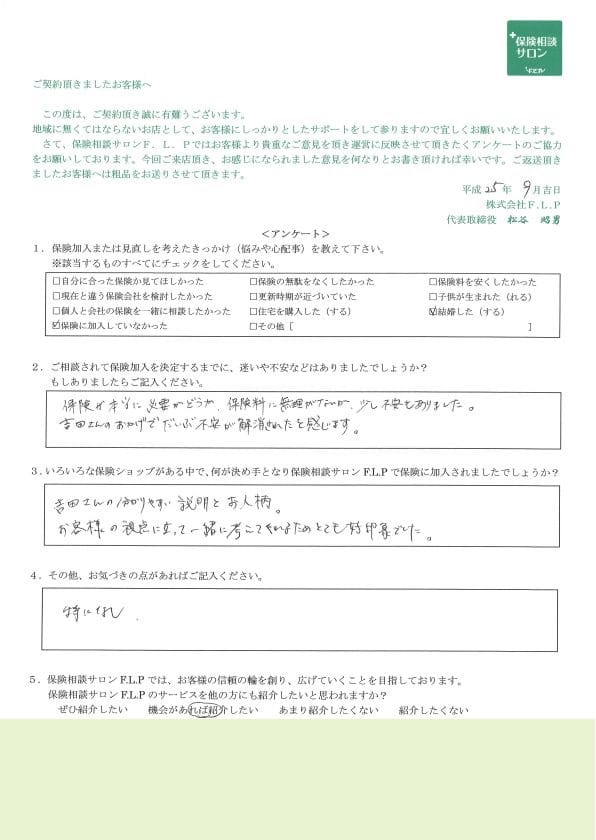 保険相談
サロン
F.L.P
ご契約頂きましたお客様へ
この度は、ご契約頂き誠に有難うございます。
地域に無くてはならないお店として、お客様にしっかりとしたサポートをして参りますので宜しくお願いいたします。
さて、保険相談サロンF.L.Pではお客様より貴重なご意見を頂き運営に反映させて頂きたくアンケートのご協力
をお願いしております。今回ご来店頂き、お感じになられました意見を何なりとお書き頂ければ幸いです。ご返送頂き
ましたお客様へは粗品をお送りさせて頂きます。
平成 25年 9月吉日
株式会社F.L.P
代表取締役 松谷 昭男
<アンケート>
1．保険加入または見直しを考えたきっかけ（悩みや心配事）を教えて下さい。
※該当するものすべてにチェックをしてください。
□自分に合った保険か見てほしかった □保険の無駄をなくしたかった □保険料を安くしたかった
□現在と違う保険会社を検討したかった □更新時期が近づいていた □子供が生まれた（れる）
□個人と会社の保険を一緒に相談したかった □住宅を購入した（する） ☑結婚した（する）
☑保険に加入していなかった □その他［ ］
2．ご相談されて保険加入を決定するまでに、迷いや不安などはありましたでしょうか？
もしありましたらご記入ください。
保険が本当に必要かどうか、保険料に無理がないか、少し不安もありました。
吉田さんのおかげでだいぶ不安が解消されたと感じます。
3．いろいろな保険ショップがある中で、何が決め手となり保険相談サロンF.L.Pで保険に加入されましたでしょうか？
吉田さんの分かりやすい説明とお人柄。
お客様の視点に立って一緒に考えてくれるためとても好印象でした。
4．その他、お気づきの点があればご記入ください。
特になし.
5．保険相談サロンF.L.Pでは、お客様の信頼の輪を創り、広げていくことを目指しております。
保険相談サロンF.L.Pのサービスを他の方にも紹介したいと思われますか？
ぜひ紹介したい 機会があれば紹介したい あまり紹介したくない 紹介したくない